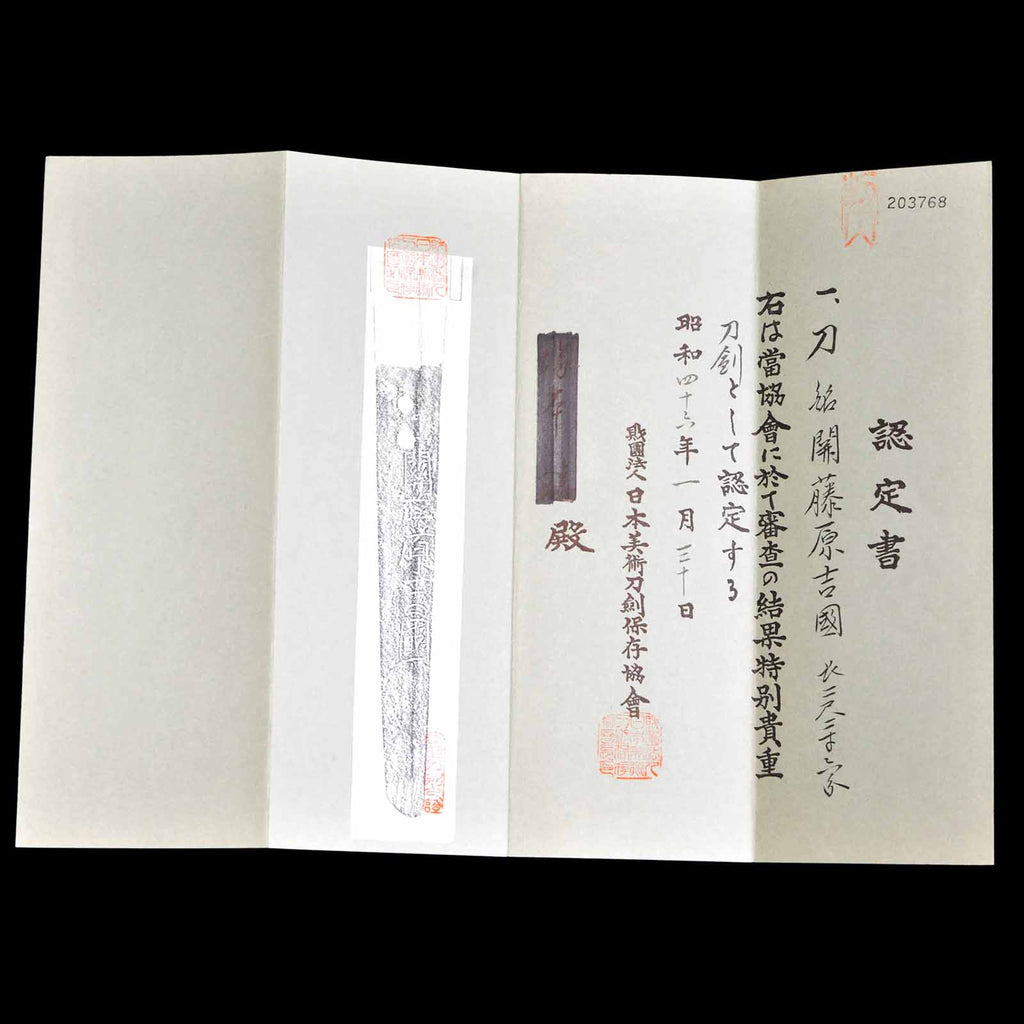 203768
認定書
一、刀 銘 關藤原吉國 長二尺二寸六分
右は當協會に於て審査の結果特別貴重
刀劍として認定する
昭和四十六年一月三十日
財團法人日本美術刀劍保存協會
殿